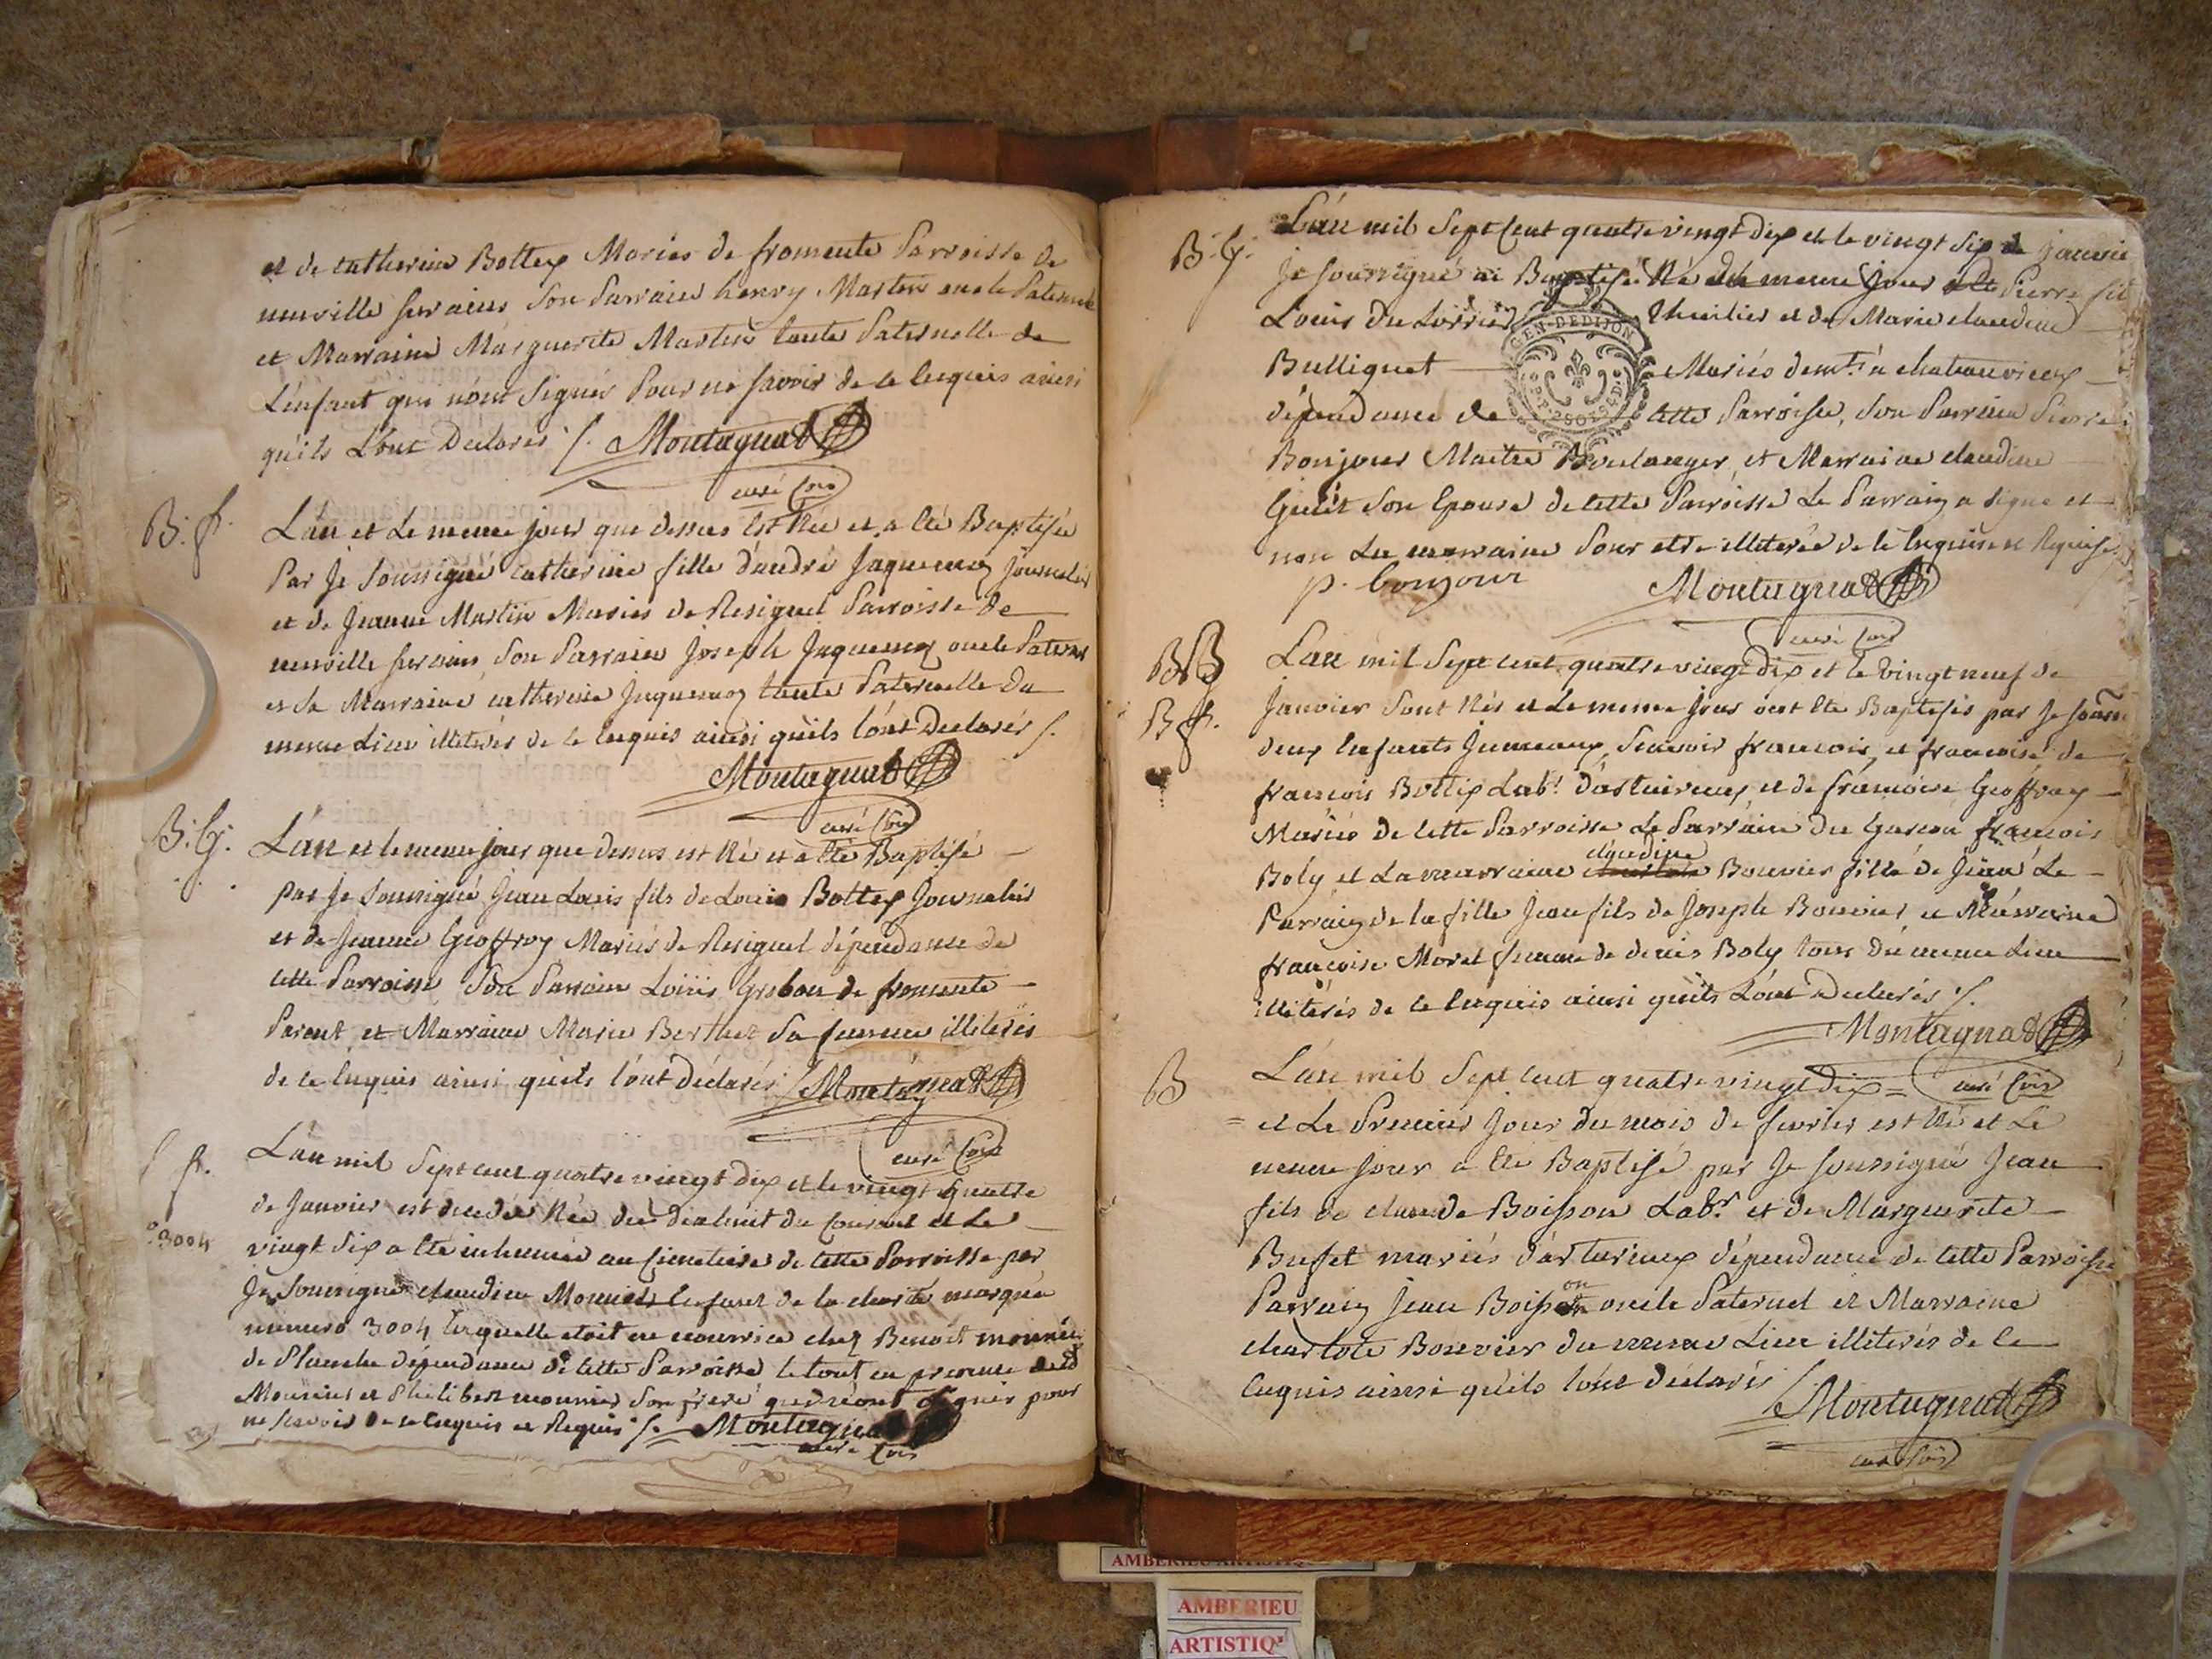 et de catherine Bottex Mariés de fromente Parroisse de
neuville sur ains son Parrain henry Martin oncle Paternel
et Marraine Marguerite Martin tante Paternelle de
L'enfant qui n'ont signés Pour ne savoir de ce enquis ainsi
qu'ils L'ont Declarés /. Montagnat
curé soir
B. f. L'an et Le meme jour que dessus est Née et a été Baptisée
Par Je soussigné catherine fille d'andré Jaquemoz journalier
et de Jeanne Martin Mariés de Resignel Parroisse de
neuville sur ains son Parrain Joseph Jaquemoz oncle Paternel
et sa Marraine catherine Jaquemoz tante Paternelle du
meme Lieu illiterés de ce enquis ainsi qu'ils l'ont Declarés /.
Montagnat
curé
B. G. L'an et le meme jour que dessus est Né et a été Baptisé
par Je soussigné Jean Louis fils de Louis Bottex Journalier
et de Jeanne Geoffroy Mariés de Resignel dépendance de
cette Parroisse son Parrain Loüis Grobon de fromente
Parent et Marraine Marie Berthet sa femme illiterés
de ce enquis ainsi qu'ils l'ont déclarés / Montagnat
curé
f. L'an mil sept cent quatre vingt dix et le vingt quatre
de Janvier est decedée Née du dixhuit du courant et Le
3004 vingt six a été inhumée au cimetiere de cette Parroisse par
Je soussigné claudine Monnet enfant de la charité marqué
numero 3004 laquelle etoit en nourrice chez Benoit monnier
de Planche dépendance de cette Parroisse le tout en presence dud
Mounier et Philibert mounier son frere qui n'ont signés pour
ne scavoir de ce enquis et Requis /. Montagnat
curé
B. G. L'an mil sept cent quatre vingt dix et le vingt six de janvier
Je soussigné ai Baptisé Né du meme jour Pierre fils
Louis Thuilier et de Marie claudine
GEN. DE DIJON
Bulliquet Mariés demt. à chateauvieux
dépendance de cette Parroisse, son Parrain Pierre
Bonjour Maitre Boulanger et Marraine claudine
son Epouse de cette Parroisse Le Parrain a signé et
non La marraine Pour etre illiterée de ce enquise et Requise /.
p. bonjour Montagnat
curé
B. B. f. L'an mil sept cent quatre vingt dix et le vingt neuf de
Janvier sont Nés et Le meme jour ont été Baptisés par Je
deux Enfants Jumeaux, scavoir francois et francoise de
francois Bottex Labr. et de francoise Geoffray
Mariés de cette Parroisse Le Parrain du Garcon francois
Boly et La marraine claudine Bouvier fille de Jean Le
Parrain de la fille Jean fils de Joseph Bouvier et Marraine
francoise Morel femme de denis Boly tous du meme Lieu
illiterés de ce enquis ainsi qu'ils L'ont Declarés /.
Montagnat
B L'an mil sept cent quatre vingt dix = curé
= et Le Premier jour du mois de fevrier est Né et Le
meme jour a été Baptisé par Je soussigné Jean
fils de claude Boisson Labr. et de Marguerite
Bufet mariés d'arturieux dépendance de cette Parroisse
Parrain Jean Boisson oncle Paternel et Marraine
charlote Bouvier du meme Lieu illiterés de ce
enquis ainsi qu'ils l'ont déclarés / Montagnat
curé
AMBERIEU
ARTISTIQ